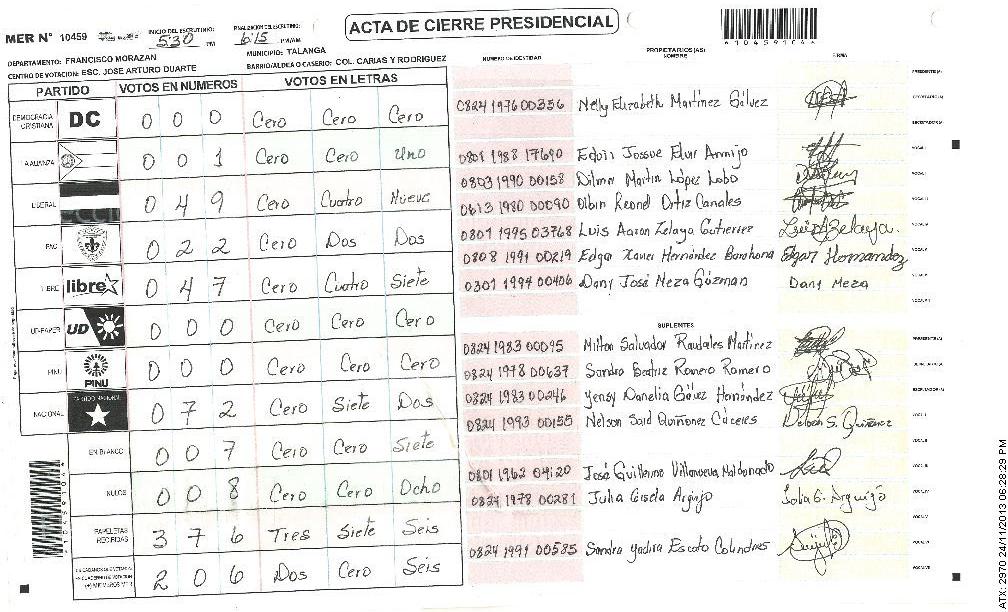 ACTA DE CIERRE PRESIDENCIAL
MER N° 10459
INICIO DEL ESCRUTINIO: 5:30 PM
FINALIZACION DEL ESCRUTINIO: 6:15 PM/AM
*10459104*
DEPARTAMENTO: FRANCISCO MORAZAN
MUNICIPIO: TALANGA
CENTRO DE VOTACION: ESC. JOSE ARTURO DUARTE
BARRIO/ALDEA O CASERIO: COL. CARIAS Y RODRIGUEZ
PARTIDO VOTOS EN NUMEROS VOTOS EN LETRAS
DEMOCRACIA CRISTIANA DC 0 0 0 Cero Cero Cero
LA ALIANZA 0 0 1 Cero Cero Uno
LIBERAL 0 4 9 Cero Cuatro Nueve
PAC 0 2 2 Cero Dos Dos
LIBRE libre 0 4 7 Cero Cuatro Siete
UD-FAPER UD 0 0 0 Cero Cero Cero
PINU PINU 0 0 0 Cero Cero Cero
NACIONAL PARTIDO NACIONAL 0 7 2 Cero Siete Dos
EN BLANCO 0 0 7 Cero Cero Siete
NULOS 0 0 8 Cero Cero Ocho
PAPELETAS RECIBIDAS 3 7 6 Tres Siete Seis
2 0 6 Dos Cero Seis
NUMERO DE IDENTIDAD
PROPIETARIOS (AS)
NOMBRE
FIRMA
PRESIDENTE(A)
0824 1976 00356 Nelly Elizabeth Martínez Gálvez SECRETARIO(A)
ESCRUTADOR(A)
0801 1988 17690 Edvin Jossue Elvir Armijo VOCAL I
0803 1990 00158 Dilmer Martin López Lobo VOCAL II
0613 1980 00090 Olbin Reonel Ortiz Canales VOCAL III
0801 1995 03768 Luis Aaron Zelaya Gutierrez Luis A Zelaya. VOCAL IV
0808 1991 00219 Edgar Xavier Hernández Barahona Edgar Hernandez VOCAL V
0301 1994 00406 Dany José Meza Gúzman Dany Meza VOCAL VI
SUPLENTES
0824 1983 00095 Milton Salvador Raudales Martínez PRESIDENTE(A)
0824 1978 00637 Sandra Beatriz Romero Romero SECRETARIO(A)
0824 1983 00246 Yensy Danelia Gálvez Hernández ESCRUTADOR(A)
0824 1993 00155 Nelson Said Quiñonez Cáceres Nelson S. Quiñonez VOCAL I
VOCAL II
0801 1962 04120 José Guillermo Villanueva Maldonado VOCAL III
0824 1978 00281 Julia Gisela Argijo VOCAL IV
VOCAL V
0824 1991 00585 Sandra Yadira Escoto Colindres VOCAL VI
*10459104*
ATX: 2970 24/11/2013 06:28:29 PM